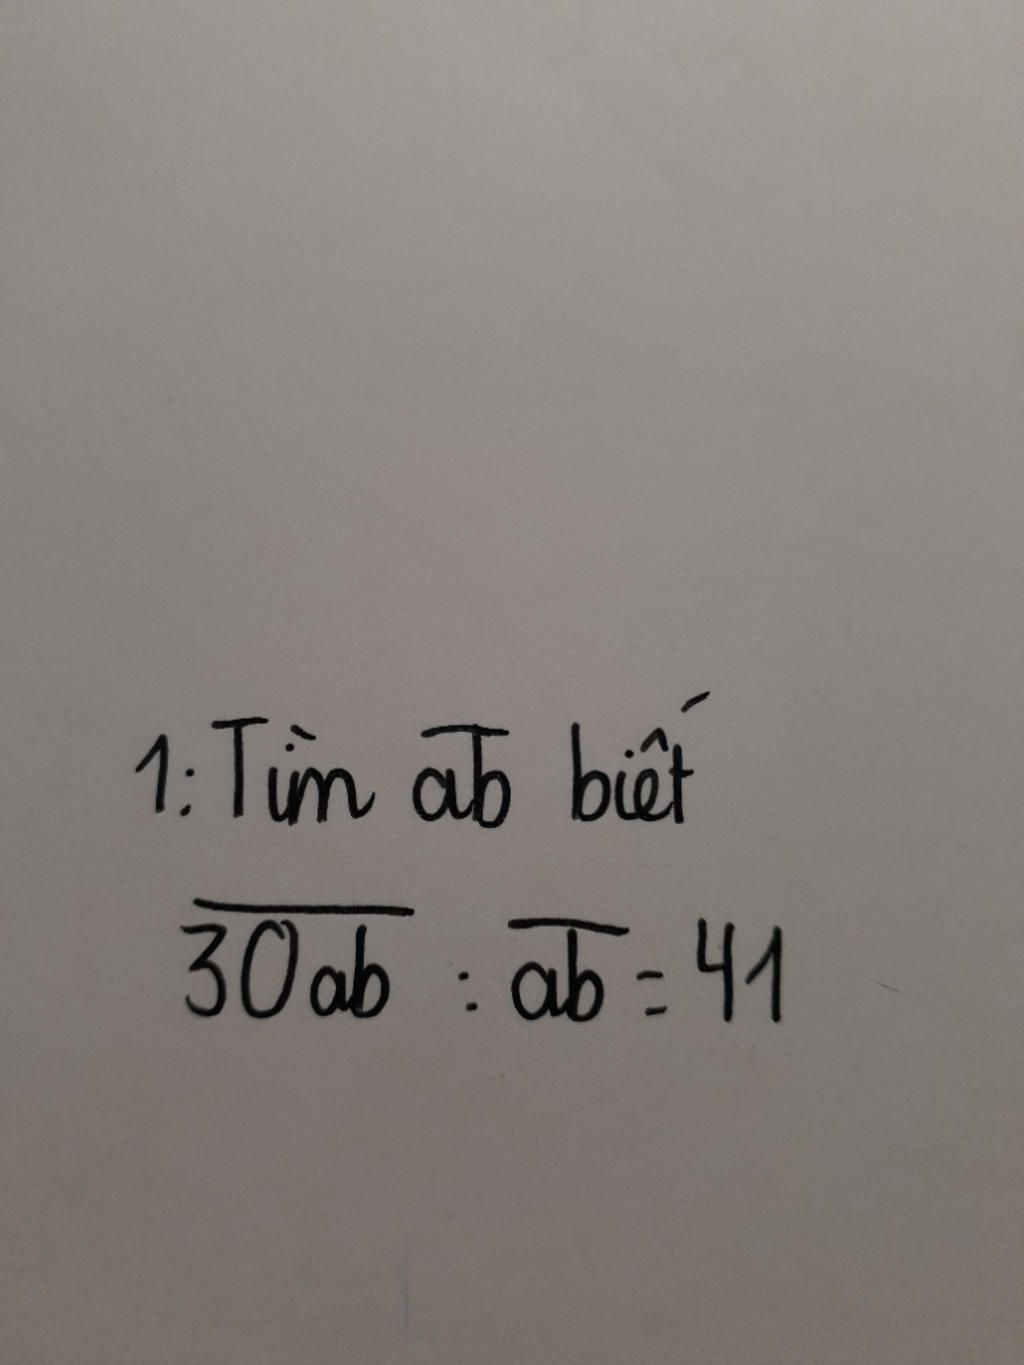 1: Tìm ab biết
30ab : ab = 41